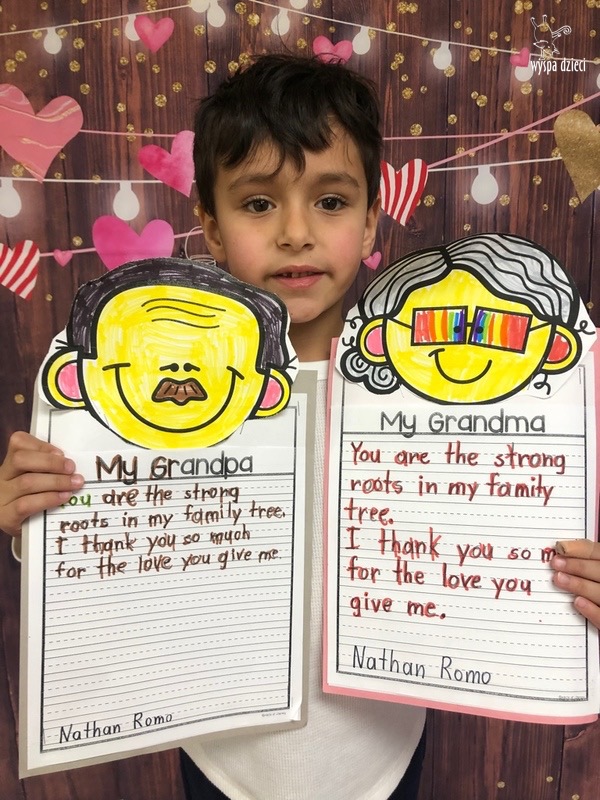 wyspa dzieci
My Grandpa
You are the strong
roots in my family tree.
I thank you so much
for the love you give me.
Nathan Romo
My Grandma
You are the strong
roots in my family
tree.
I thank you so m
for the love you
give me.
Nathan Romo